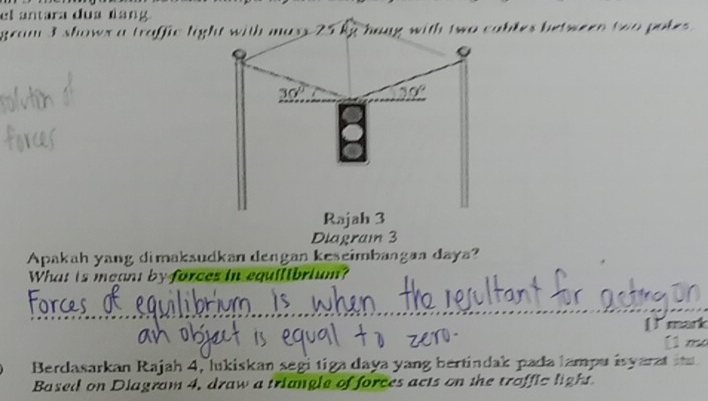 el antara dua tiang.
gram 3 shows a traffic light with mass 25 kg hung with two cables between two poles.
solution of
forces
30° 30°
Rajah 3
Diagram 3
Apakah yang dimaksudkan dengan keseimbangan daya?
What is meant by forces in equilibrium?
Forces of equilibrium is when the resultant for acting on
an object is equal to zero.
[1 mark
[1 ma
Berdasarkan Rajah 4, lukiskan segi tiga daya yang bertindak pada lampu isyarat itu.
Based on Diagram 4, draw a triangle of forces acts on the traffic light.